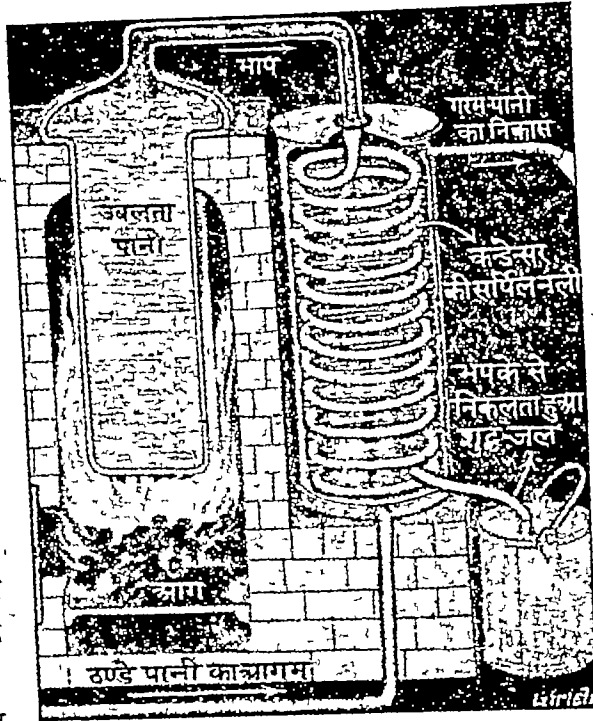 भाप
गरम पानी
का निकास
उबलता
पानी
कंडेन्सर
की सर्पिल नली
भपके से
निकलता हुआ
शुद्ध-जल
आग
ठण्डे पानी का आगम